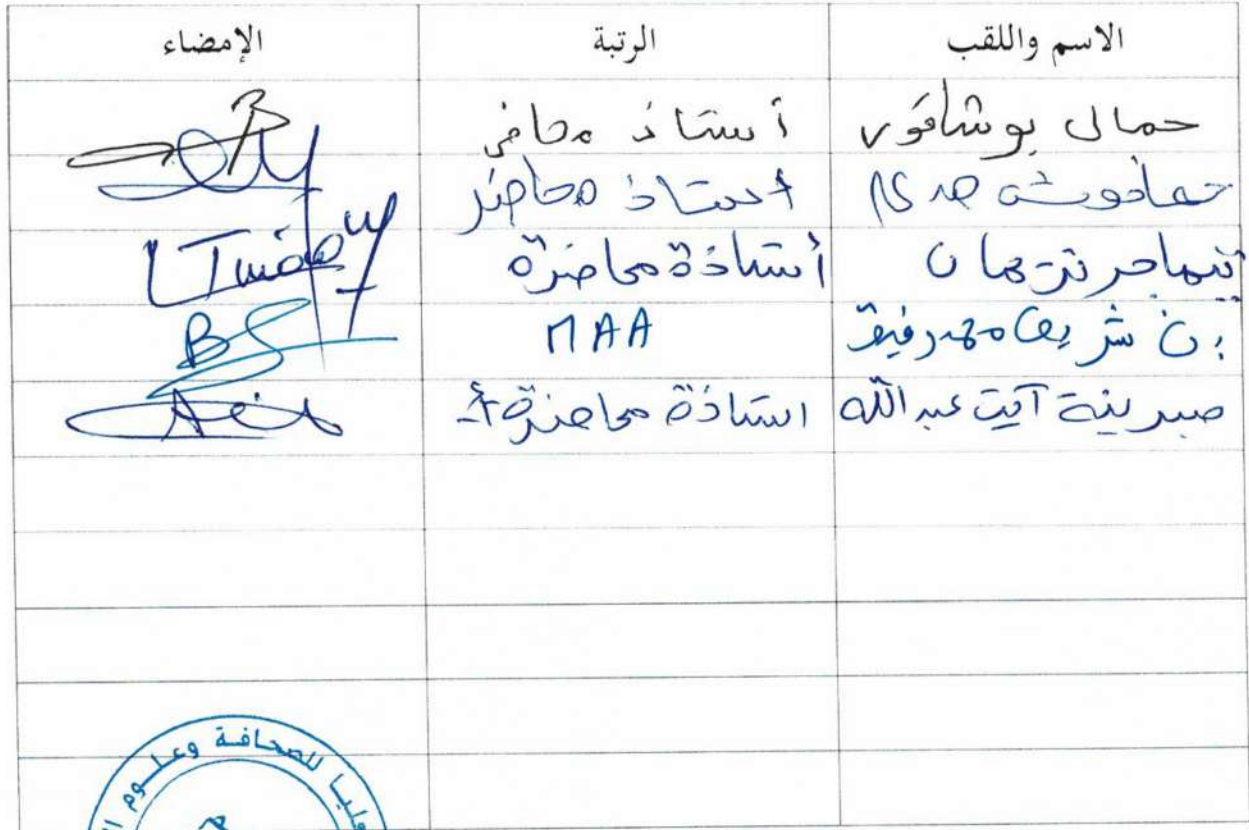 الاسم واللقب الرتبة الإمضاء
جمال بوشاقور أستاذ محاضر
حمادوش أستاذ محاضر
نريمان أستاذة محاضرة
بن شريف محمد رفيق MAA
صبرينة آيت عبد الله استاذة محاضرة أ
عليا للصحافة وعلوم